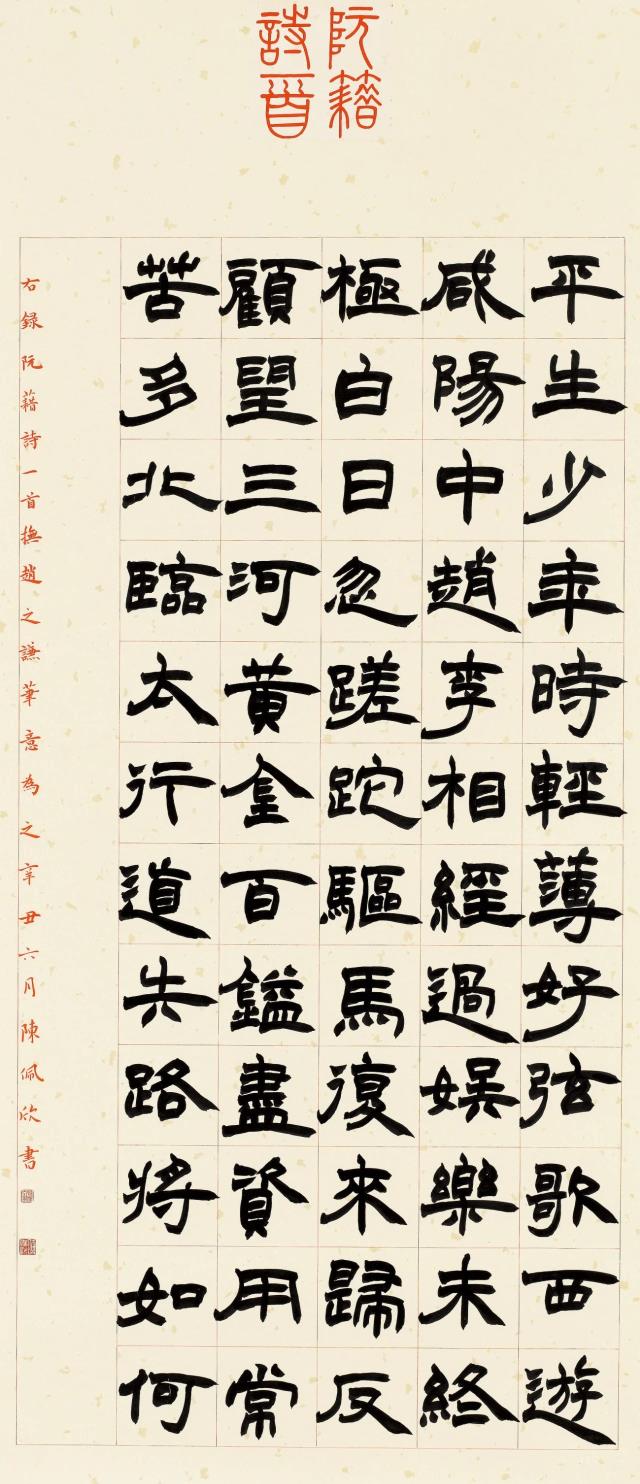 阮籍
詩一首
平生少年時輕薄好弦歌西遊
咸陽中趙李相經過娛樂未終
極白日忽蹉跎驅馬復來歸反
顧望三河黃金百鎰盡資用常
苦多北臨太行道失路將如何
右録阮藉詩一首撫趙之謙筆意為之辛丑六月陳佩欣書